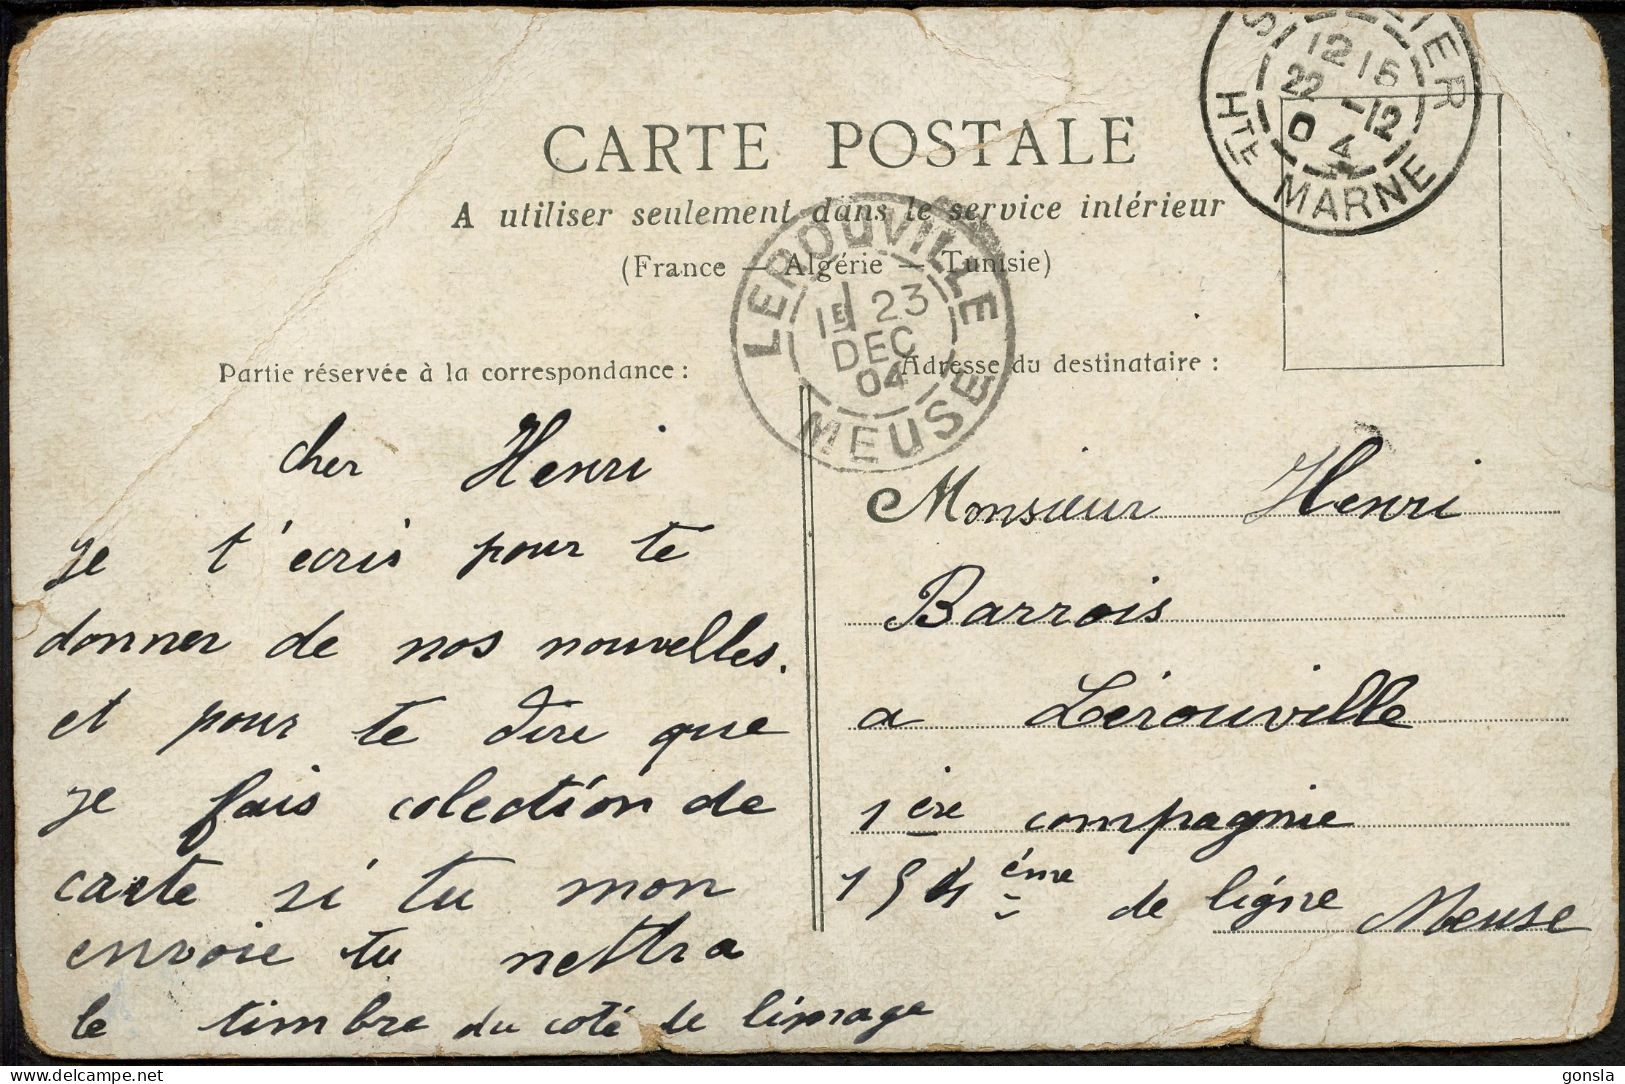 CARTE POSTALE
A utiliser seulement dans le service intérieur
(France — Algérie — Tunisie)
12 15
22 -12
04
HTE MARNE
LEROUVILLE
23
DEC
04
MEUSE
Partie réservée à la correspondance :
cher Henri
je t'ecris pour te
donner de nos nouvelles.
et pour te dire que
je fais colection de
carte si tu mon
envoie tu mettra
le timbre du coté de limage
Adresse du destinataire :
Monsieur Henri
Barrois
a Lérouville
1ère compagnie
154ème de ligne Meuse
gonsla